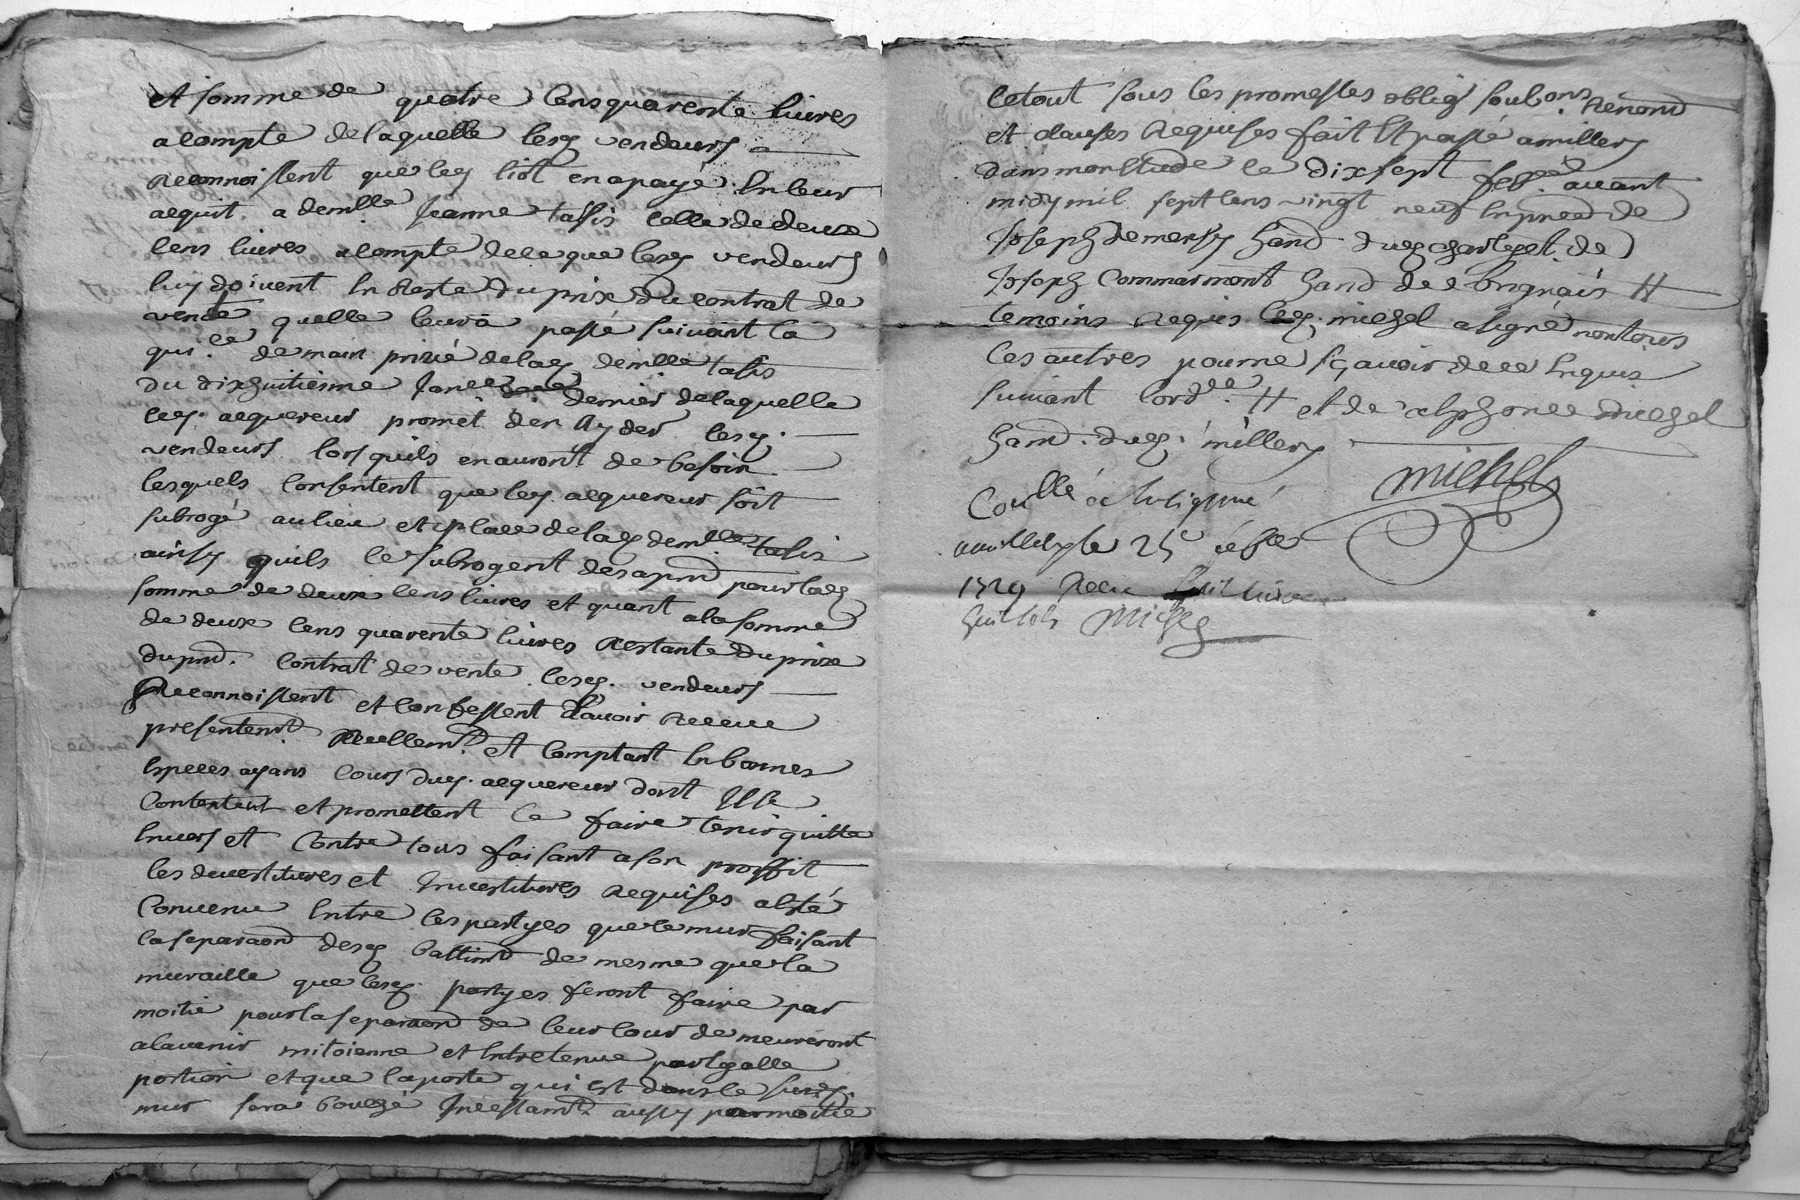 et somme de quatre cens quarente livres
a compte de laquelle lesd vendeurs
reconnoissent que led liot en a payé en leur
acquit a demlle Jeanne tassis celle de deux
cens livres a compte de ce que lesd vendeurs
luy doivent en reste du prix du contrat de
vente quelle leur a passé suivant la
quice de main privée de lad demlle tassis
du dixhuitieme Janer dernier de laquelle
led. acquereur promet den ayder lesd.
vendeurs lorsquils en auront de besoin
lesquels consentent que led. acquereur soit
subrogé au lieu et place de lad demlle tassis
ainsy quils le subrogent des a pnt pour lad
somme de deux cens livres et quant a la somme
de deux cens quarente livres restante du prix
du pnt. contrat de vente lesd. vendeurs
Reconnoissent et confessent lavoir receue
presentemt. reellemt. et comptant en bonnes
especes ayans cours dud. acquereur dont Ils se
contentent et promettent le faire tenir quitte
envers et contre tous faisant a son proffit
les devestitures et Investitures requises a esté
convenu entre les partyes que le mur faisant
la separaon desd battimt de mesme que la
muraille que lesd. partyes feront faire par
moitié pour la separaon de leur cour demeureront
a lavenir mitoienne et entretenue par egalle
portion et que la porte qui est dans le susd.
mur sera bouchée Incessamt. aussy par moitié
le tout sous les promesses oblig soubons. Renond
et clauses requises fait et passé a millery
dans mon étude le dixsept feber. avant
midy mil sept cens vingt neuf en pnce de
Joseph demersy habt dud charly et de
Joseph Commarmont habt de Longnais #
temoins requis led. michel a signé non tous
les autres pour ne sçavoir de ce enquis
suivant lordce. # et de alphonce michel
habt. dud. millery
michel
Collé a
millery le 25e feber
1729 Receu huit livres
Michel